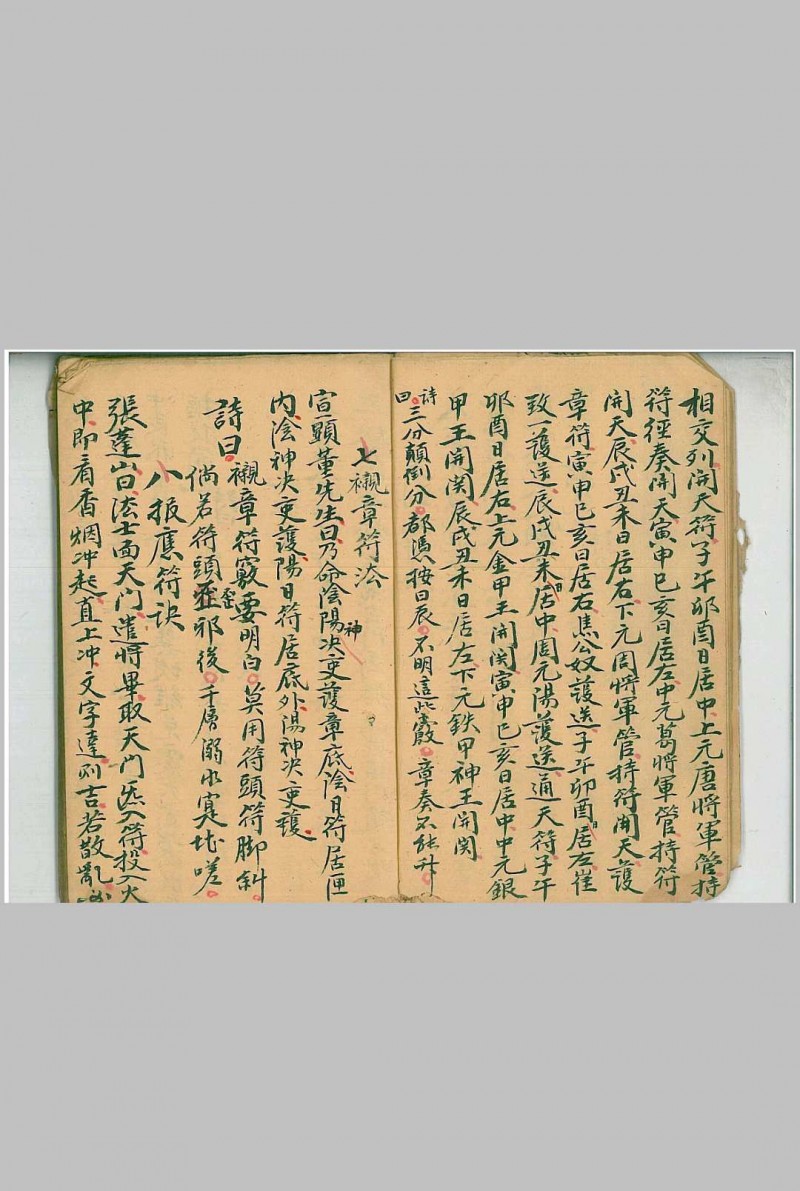 相交列開天符子午卯酉日居中上元唐將軍管持
符徑奏開天寅申巳亥日居左中元葛將軍管持符
開天辰戌丑未日居右下元周將軍管持符開天護
章符寅申巳亥日居右焦公奴護送子午卯酉日居左崔
致一護送辰戌丑未日居中周元陽護送通天符子午
卯酉日居右上元金甲王開関寅申巳亥日居中中元銀
甲王開関辰戌丑未日居左下元鉄甲神王開関
詩曰三分顛倒分都憑按日辰不明這些竅章奏不能升
七襯章符法
宣顕董先生曰乃命陰陽神决吏護章底陰日符居匣
内陰神决吏護陽日符居底外陽神决吏護
詩曰襯章符竅要明白莫用符頭符脚斜
倘若符頭歪邪後千層溺水寔堪嗟
八报應符訣
張蓬山曰法士面天門遣將畢取天門炁入符投入火
中即看香烟冲起直上冲文字達則吉若散亂